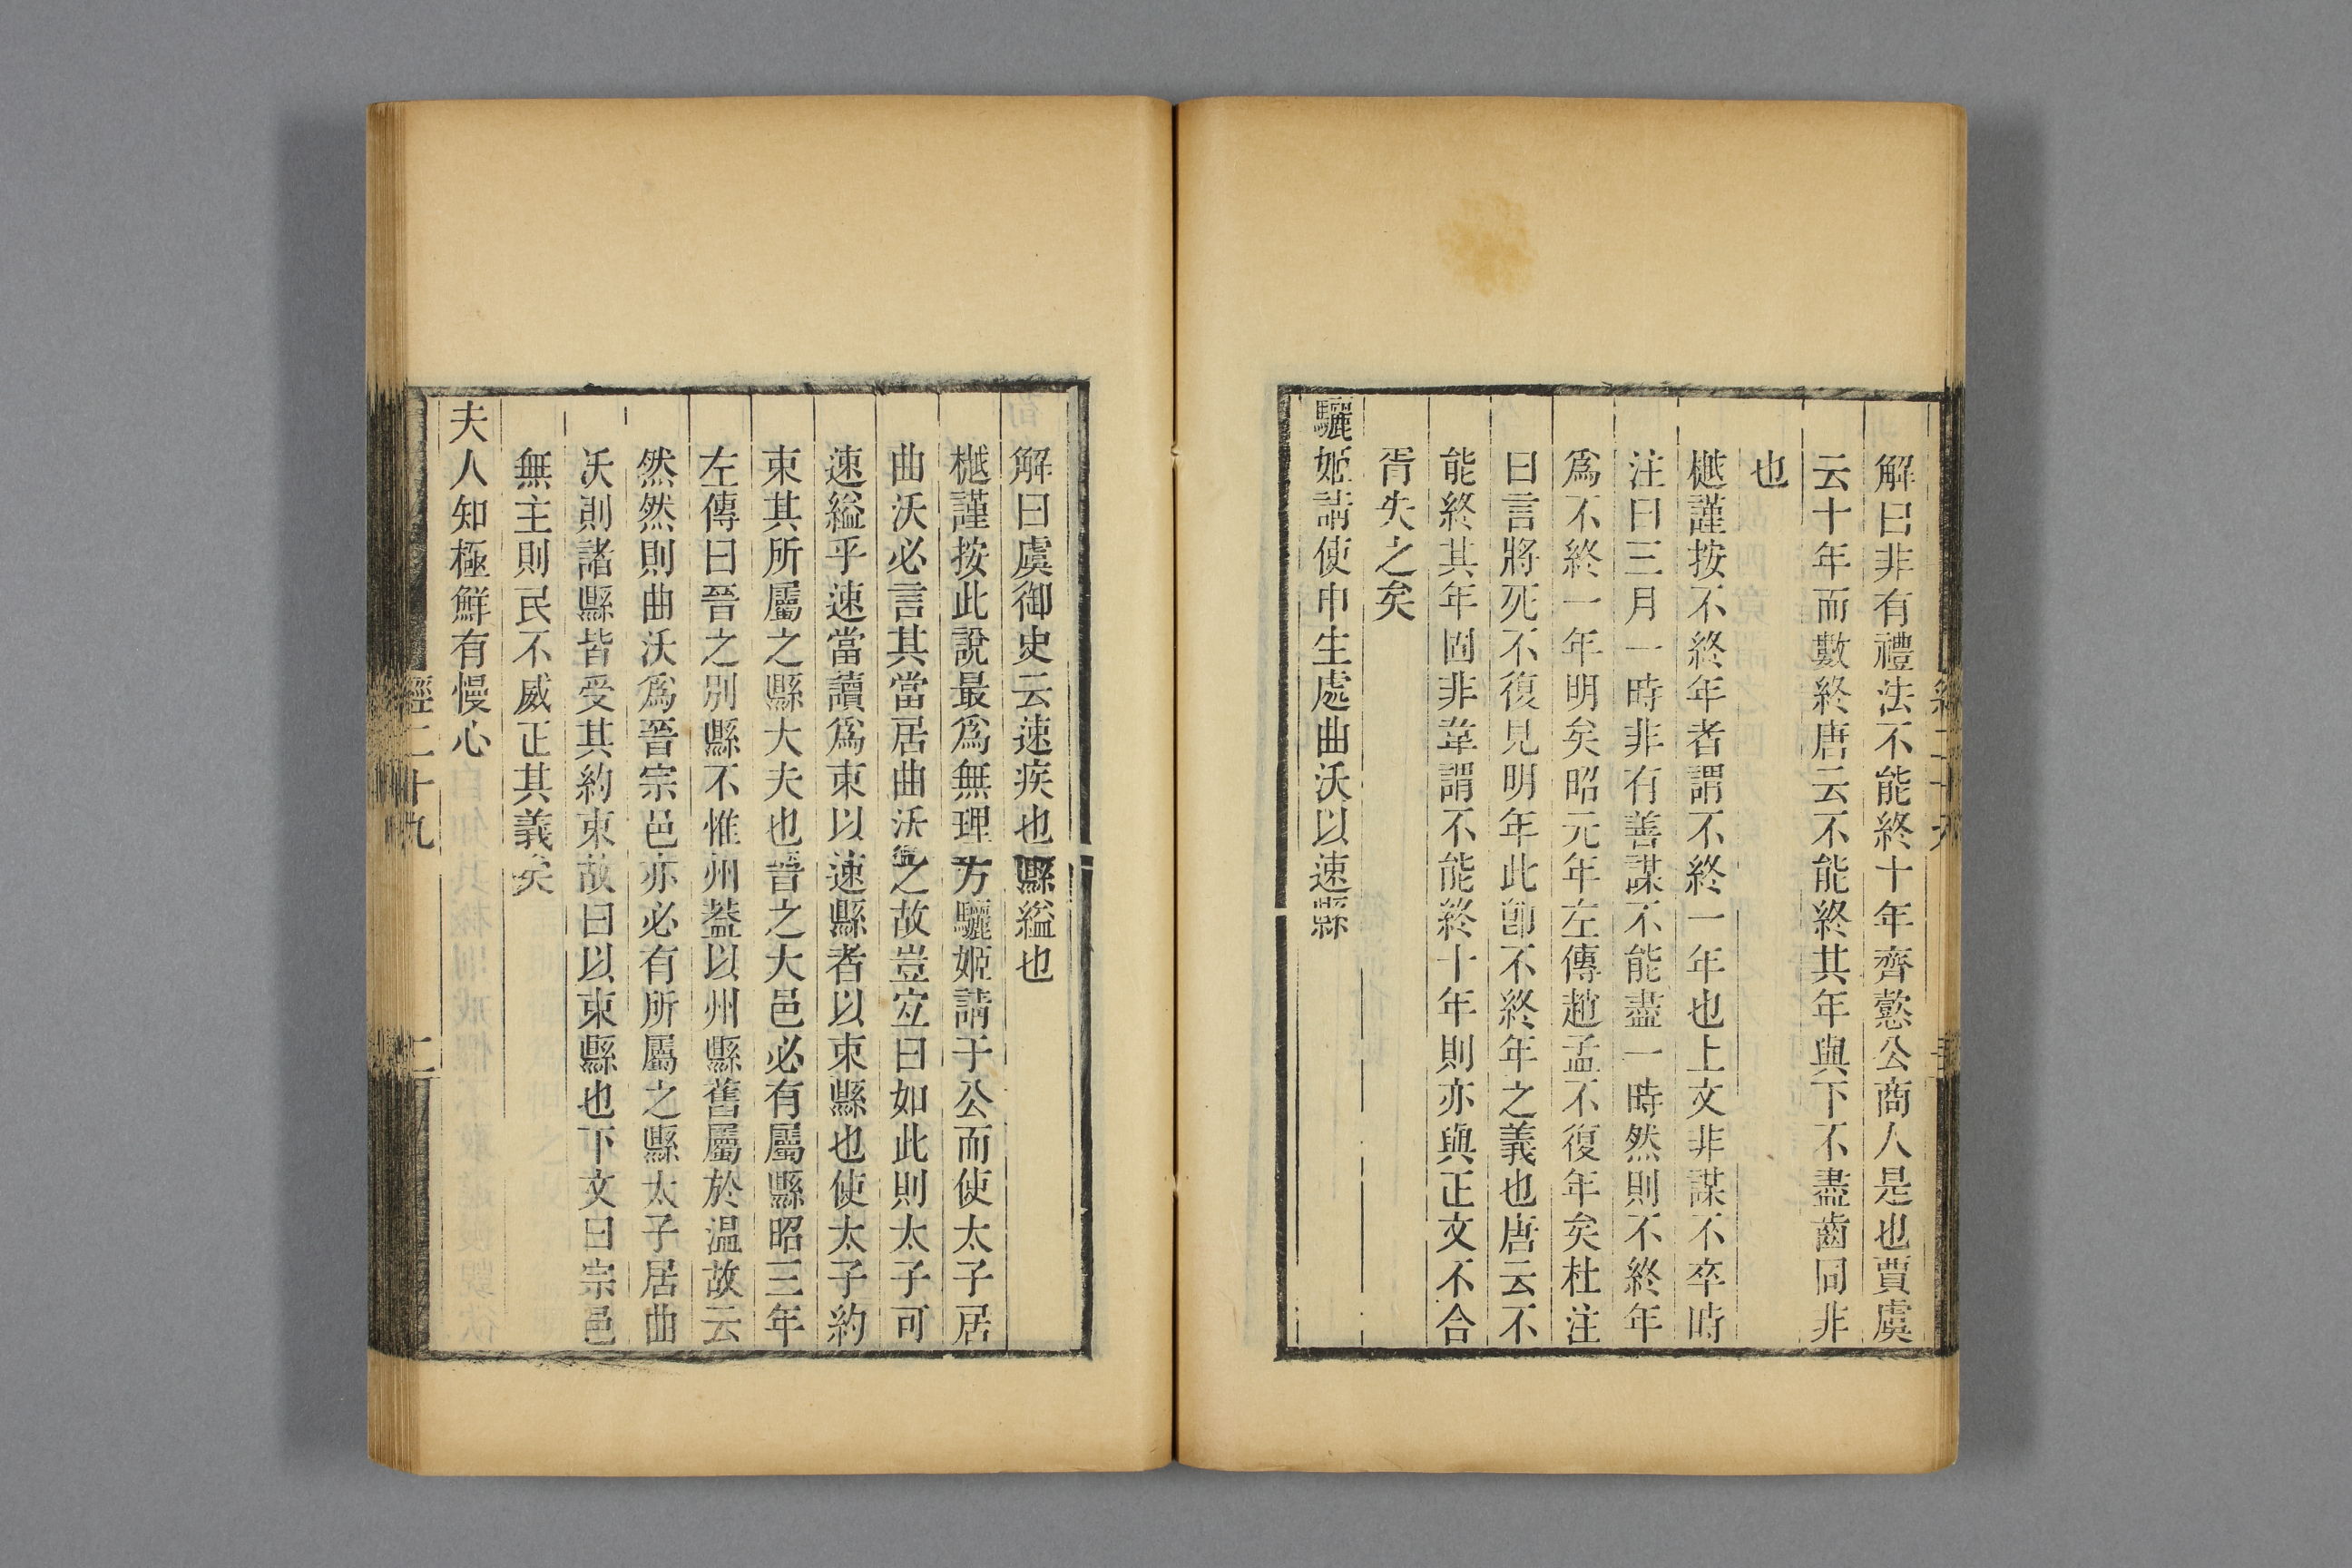 解曰非有禮法不能終十年齊懿公商人是也賈虞
云十年而數終唐云不能終其年與下不盡齒同非
也
樾謹按不終年者謂不終一年也上文非謀不卒時
注曰三月一時非有善謀不能盡一時然則不終年
爲不終一年明矣昭元年左傳趙孟不復年矣杜注
曰言將死不復見明年此卽不終年之義也唐云不
能終其年固非韋謂不能終十年則亦與正文不合
胥失之矣
驪姬請使申生處曲沃以速縣
解曰虞御史云速疾也縣縊也
樾謹按此說最爲無理方驪姬請于公而使太子居
曲沃必言其當居曲沃之故豈宐曰如此則太子可
速縊乎速當讀爲束以速縣者以束縣也使太子約
束其所屬之縣大夫也晉之大邑必有屬縣昭三年
左傳曰晉之別縣不惟州葢以州縣舊屬於温故云
然然則曲沃爲晉宗邑亦必有所屬之縣太子居曲
沃則諸縣皆受其約束故曰以束縣也下文曰宗邑
無主則民不威正其義矣
夫人知極鮮有慢心
經二十九
二